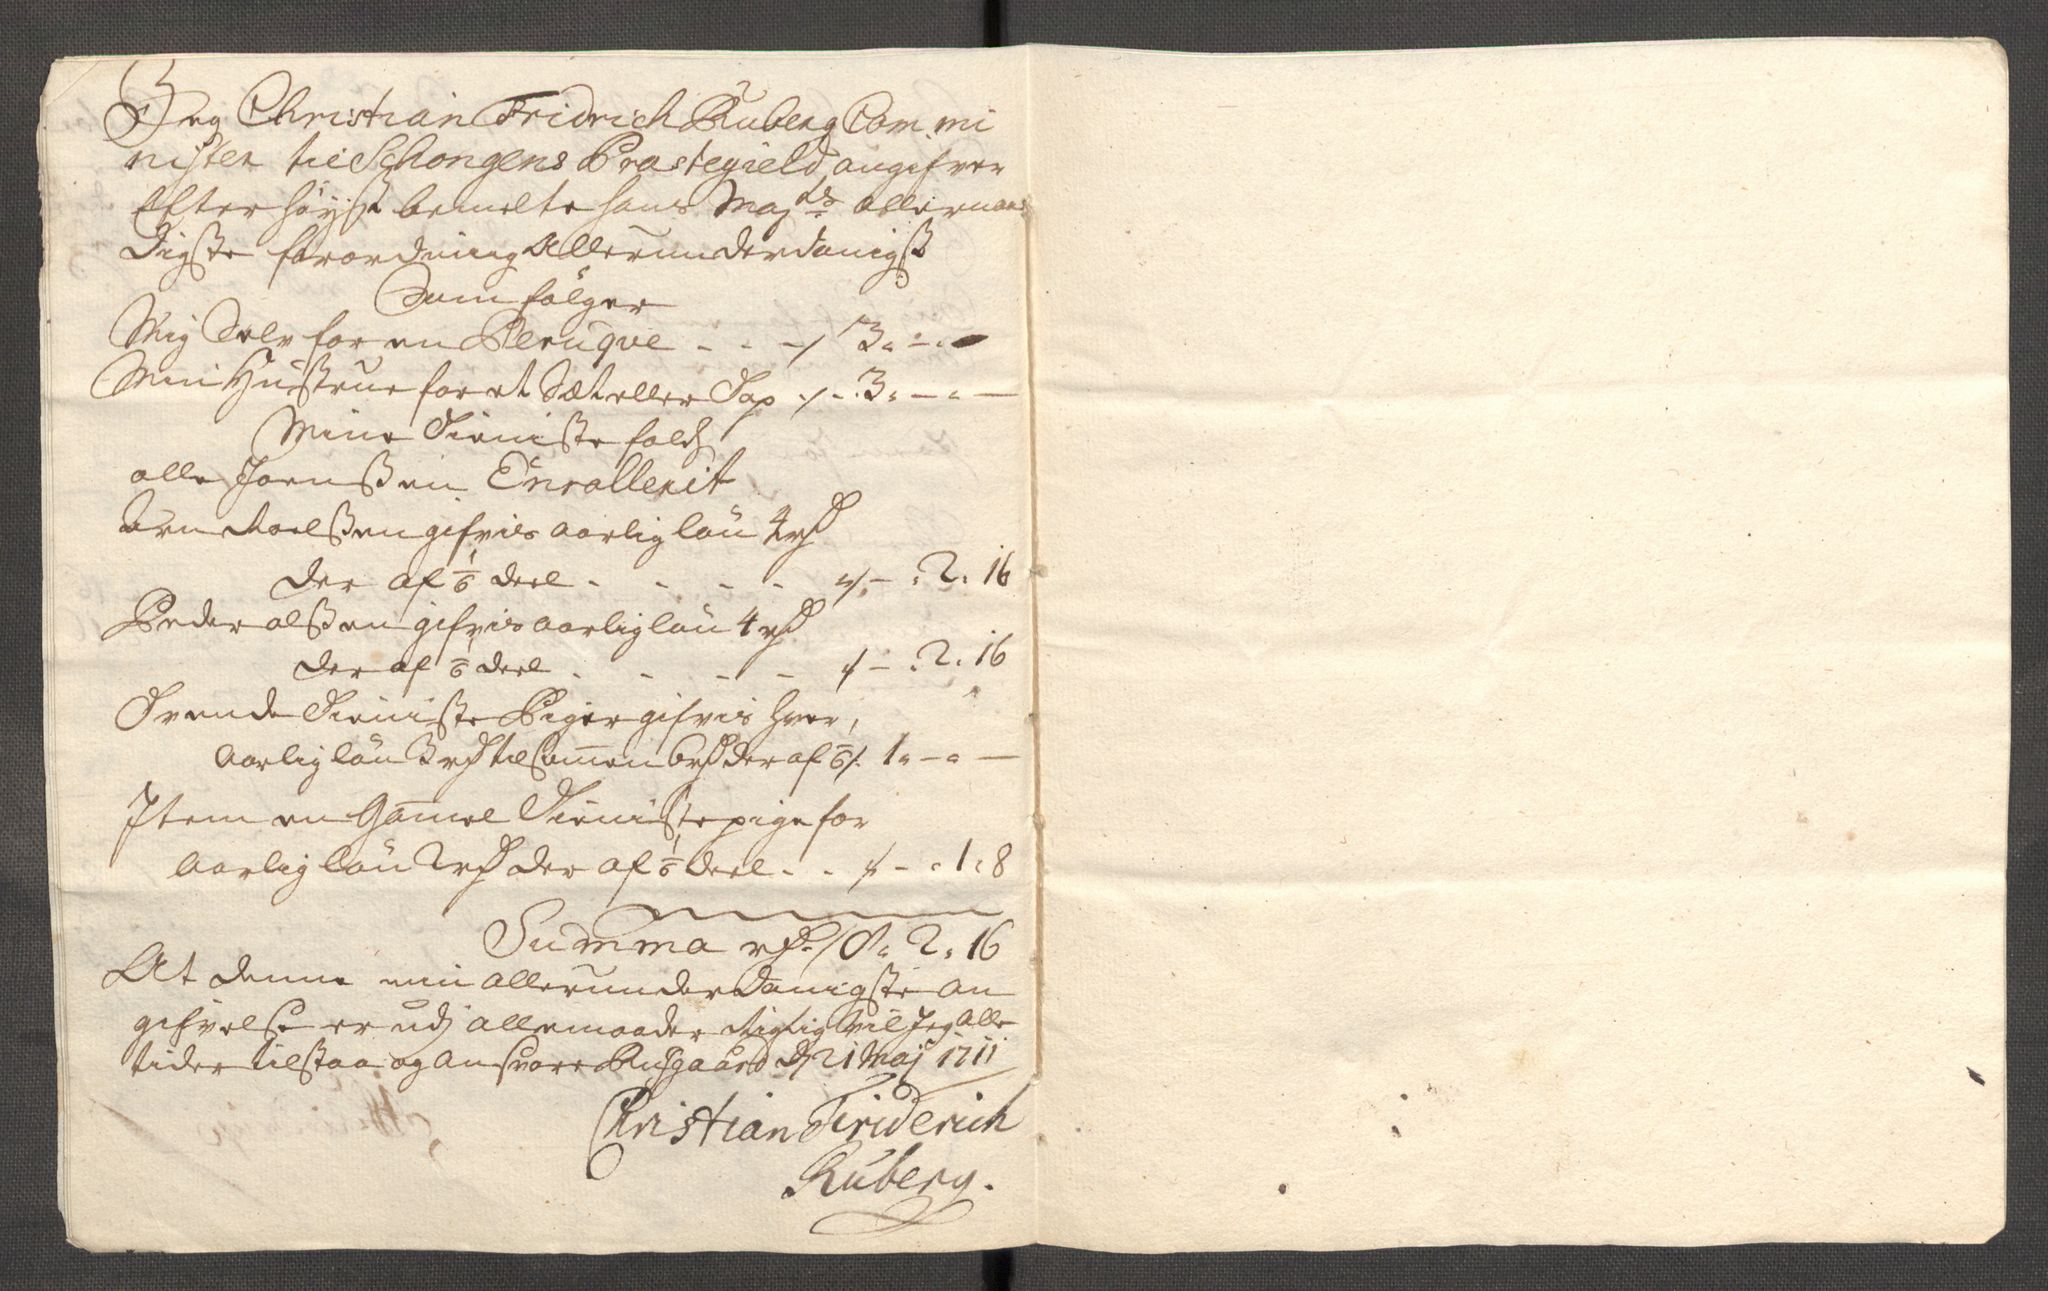 Jeg Christian Fridrich Ruberg Com mi
nister til Schongens Præstegield, angifver
Efter høyst bemelte hans Maj:ts allernaa
digste forordning Allerunderdanigst
Som følger
Mig Selv for en Peruqve - - - 3 " - " -
Min Hustrue for et Sæt eller Top - 3 " - " -
Mine Tieniste folch
olle Joenßen Enrollerit
Roelßen gifvis aarlig løn 4 rd
der af 1/6 deel - - - - - : 2 : 16
Peder olßen gifvis aarlig løn 4 rd
der af 1/6 deel - - - - - : 2 : 16
Tvende Tieniste Piger gifvis hver,
aarlig løn 3 rd tilsammen 6 rd der af 1/6 1 " - " -
Item en Gammel Tieniste pige for
aarlig løn 2 rd der af 1/6 deel - - - : 1 : 8
Summa rd. 8 : 2 : 16
At denne min allerunderdanigste an
gifvelse er udj alle maader Rigtig vil Jeg alle
tider tilstaa og ansvare d 21 Maj 1711
Christian Friderich
Ruberg.